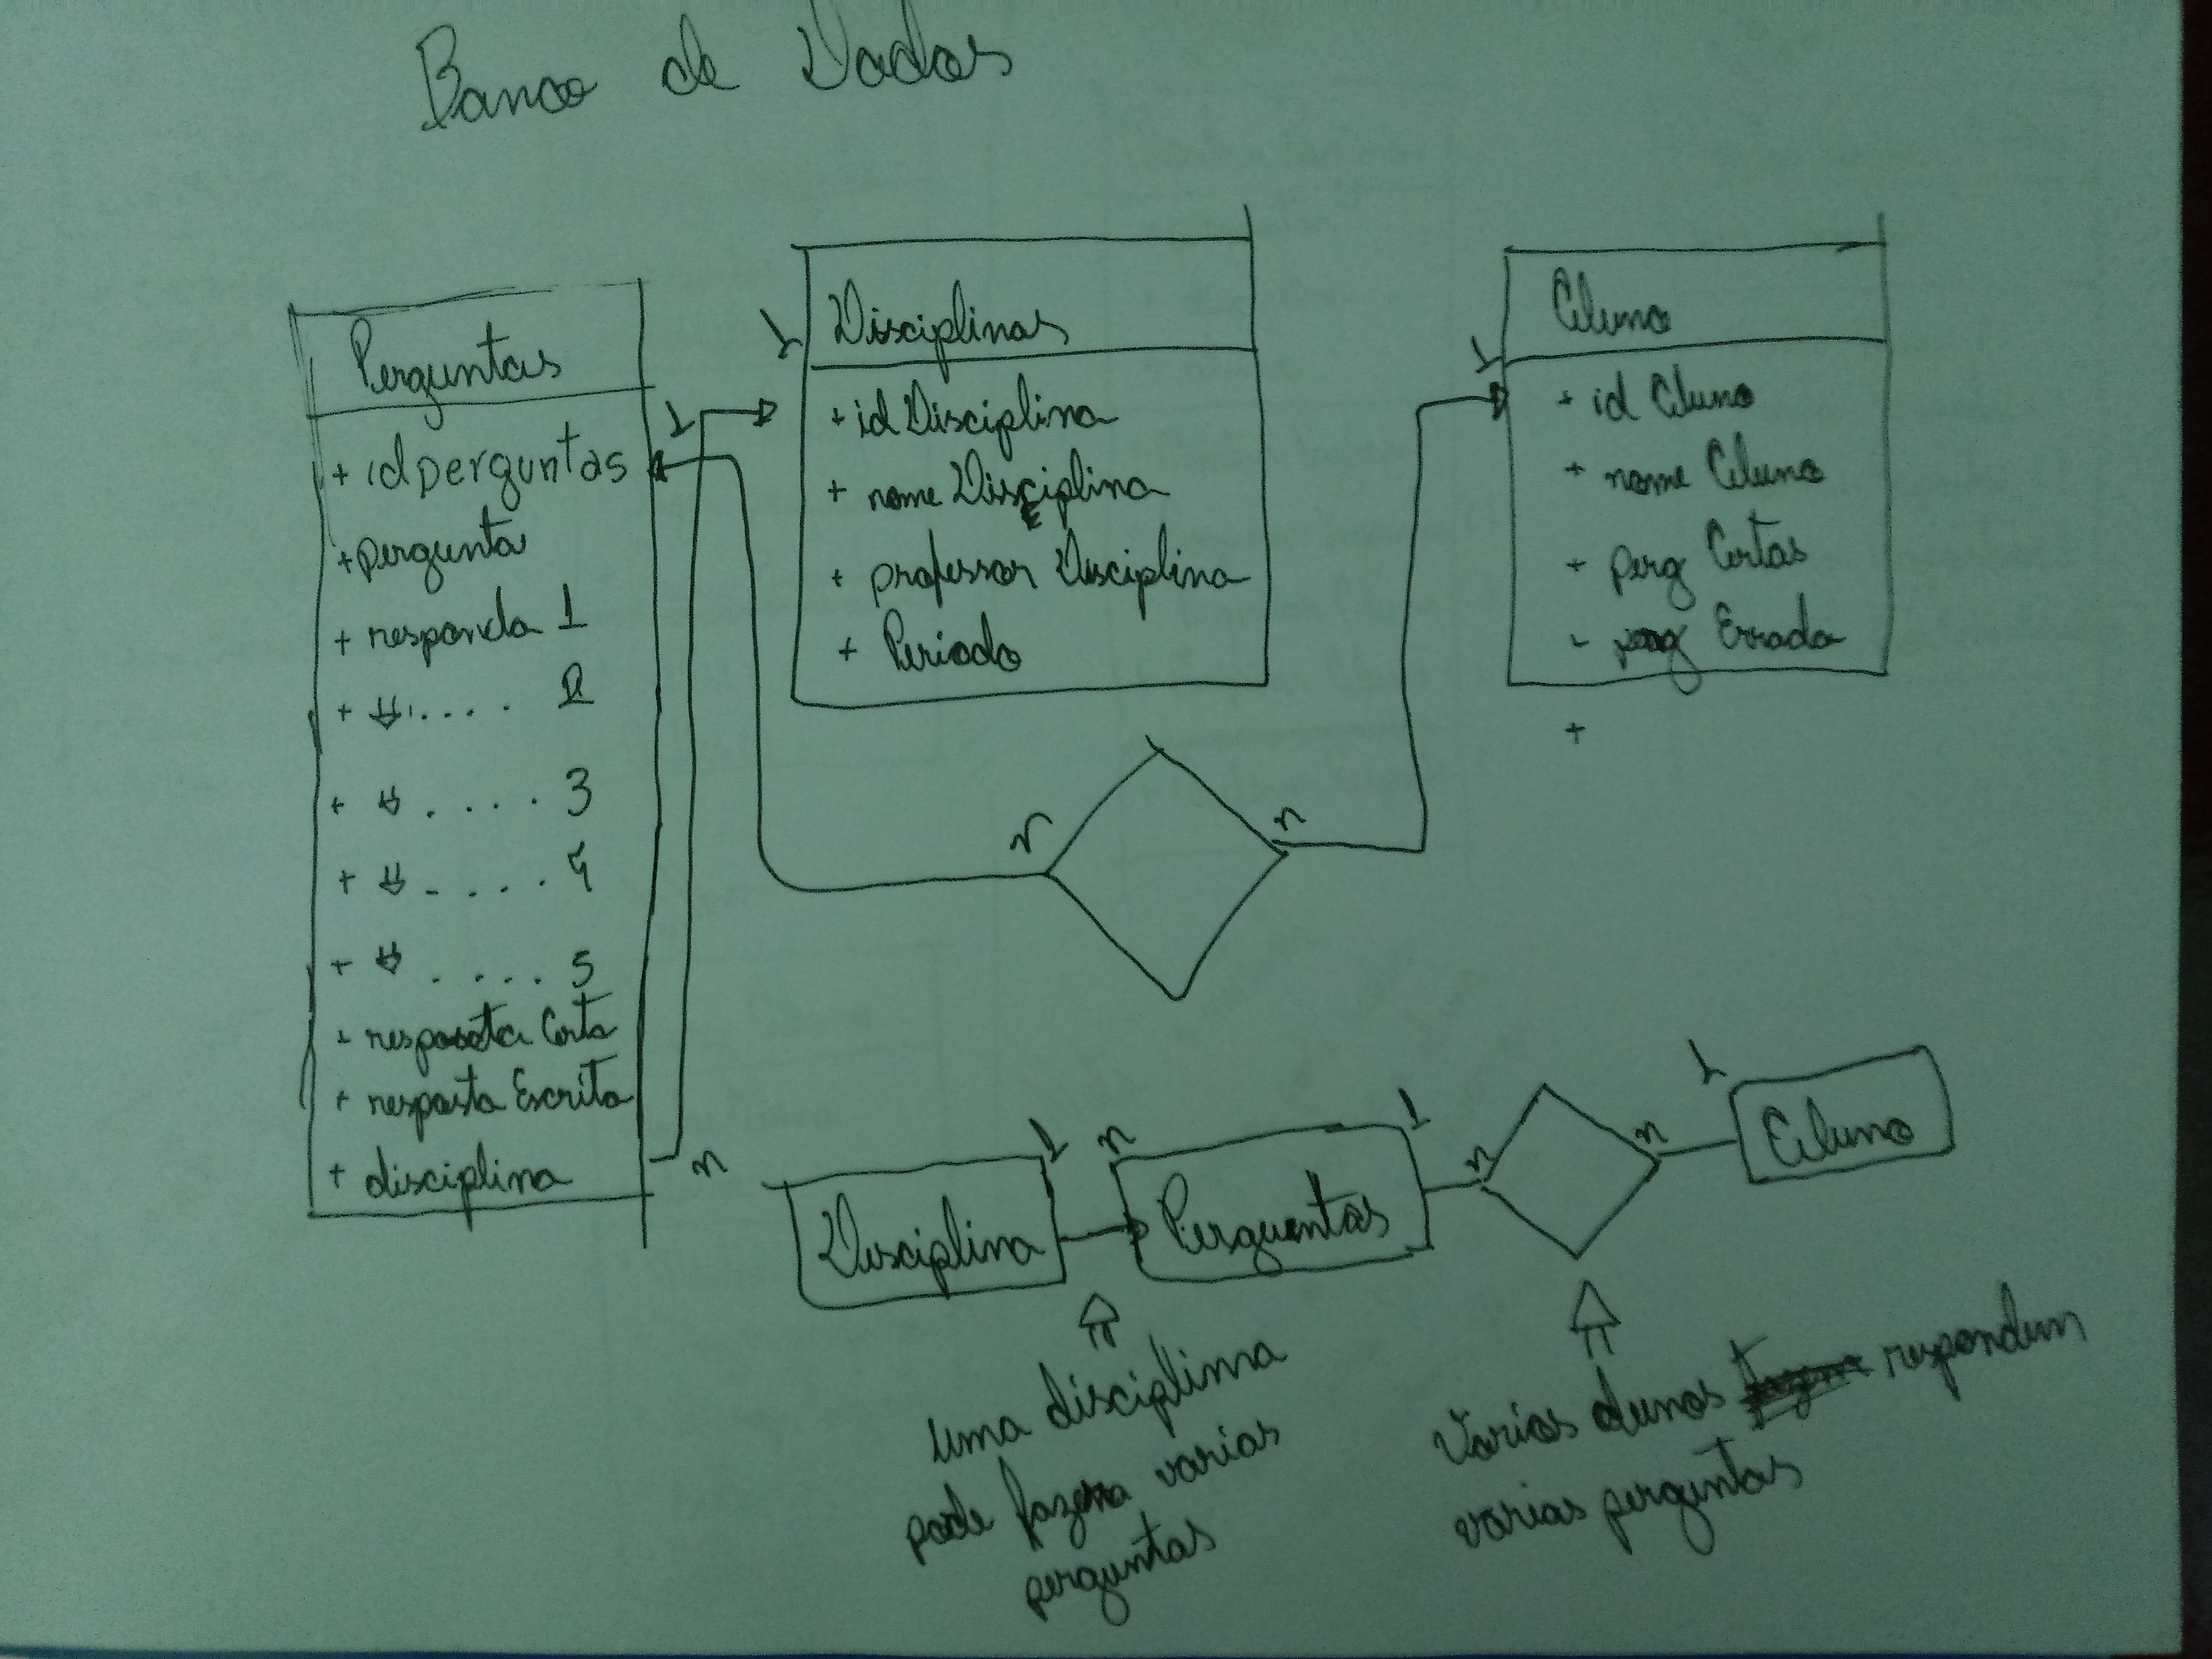 Banco de Dados
Perguntas
+ idperguntas
+ pergunta
+ responda 1
+ ⇓ .... 2
+ ⇓ .... 3
+ ⇓ .... 4
+ ⇓ .... 5
+ resposta Certa
+ resposta Escrita
+ disciplina
1
n
1
Disciplinas
+ id Disciplina
+ nome Disciplina
+ professor Disciplina
+ Periodo
1
Aluno
+ id Aluno
+ nome Aluno
+ perg Certas
- perg Errada
+
n
n
Disciplina
1
n
Perguntas
1
n
n
1
Aluno
uma disciplina
pode fazer varias
perguntas
Varios alunos respondem
varias perguntas